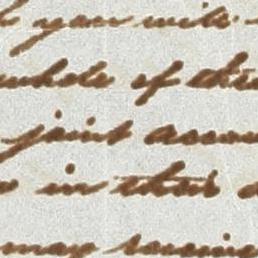 you will
whole of this
joint accou
in that
may receive